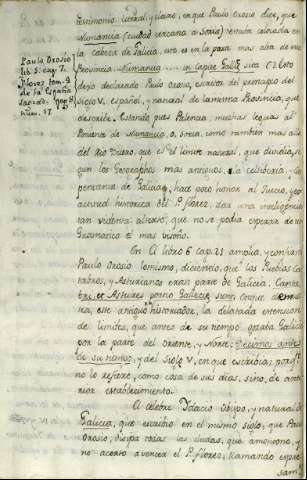 testimonio literal, y claro, en que Paulo Orosio dice, que
Numancia (ciudad cercana a Soria) estuvo colocada en
la cabeza de Galicia, esto es en la parte mas alta de esta
Provincia. Numancia .... in capite Galleciæ sita
dejo declarado Paulo Orosio, escritor del principio del
siglo V, español, y natural de la misma Provincia, que
describe. Estando pues Palencia, muchas leguas al
Poniente de Numancia, o Soria, como tambien mas alla
del Rio Duero, que es el limite natural, que dividia, se
gun los Geographos mas antiguos, la Celtiberia, y Car
petania de Galicia, hace poco honor al Juicio, y
actitud historica del P. Florez, dar una inteligencia
tan violenta al texto, que no se podia esperar de un
Gramatico el mas visoño.
En el libro 6 cap. 21 amplia, y confirma
Paulo Orosio lo mismo, diciendo, que los Pueblos Can
tabros, y Asturianos eran parte de Galicia. Canta
bri et Astures portio Galleciæ sunt, en que demues
tra, este antiguo historiador, la dilatada extension
de limites, que antes de su tiempo gozaba Galicia
por la parte del oriente, y Norte: Decimos antes
de su tiempo, y del siglo V, en que escribia; porque
no lo refiere, como cosa de sus dias, sino, de ante
rior establecimiento.
El celebre Idacio obispo, y natural de
Galicia, que escribio en el mismo siglo, que Paulo
Orosio, disipa todas las dudas, que amontono, y
no acerto a vencer el P. Florez, llamando expre
sam.
Paulo Orosio
lib. 5. cap. 7.
Florez tom. 4
de la España
Sagrad. pag.
num. 17